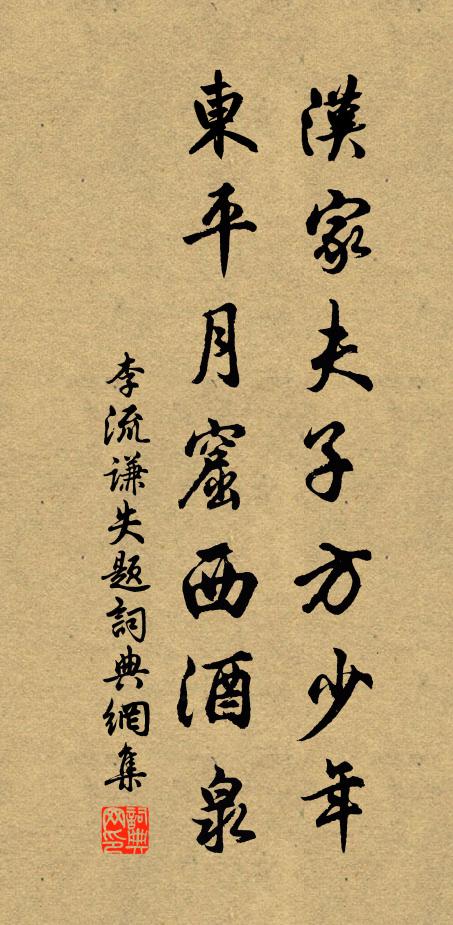 漢家夫子方少年
東平月窟西酒泉
李流谦失题詞典網集
詞典網印